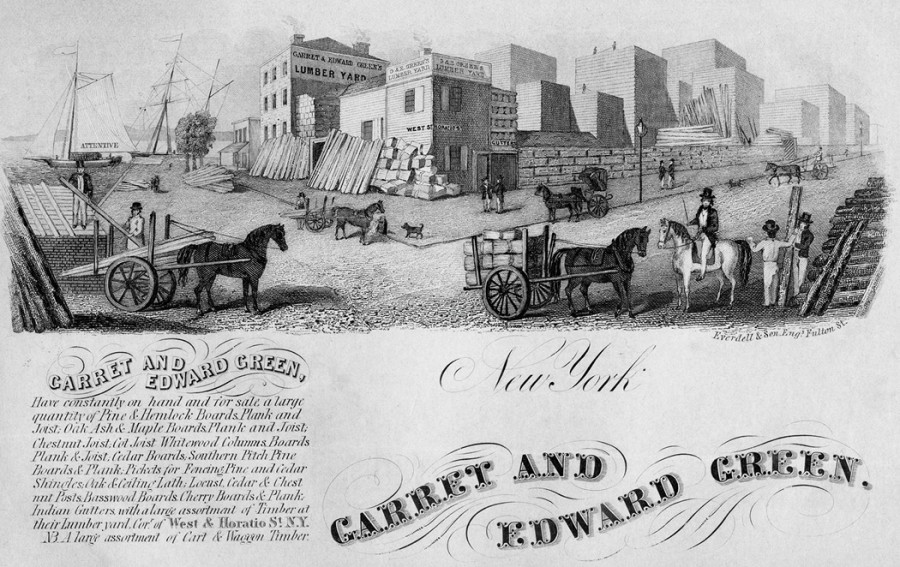 GARRET & EDWARD GREEN'S
LUMBER YARD
LUMBER YARD
LUMBER YARD
WEST ST.
ATTENTIVE
Everdell & Son, Eng.s Fulton St.
GARRET AND
EDWARD GREEN,
Have constantly on hand and for sale, a large
quantity of Pine & Hemlock Boards, Plank and
Joist; Oak Ash & Maple Boards, Plank and Joist;
Chestnut Joist; Cot Joist Whitewood Columns, Boards
Plank & Joist, Cedar Boards; Southern Pitch Pine
Boards & Plank; Pickets for Fencing Pine and Cedar
Shingles; Oak & Ceiling Lath; Locust, Cedar & Chest
nut Posts, Basswood Boards, Cherry Boards & Plank
Indian Gutters, with a large assortment of Timber at
their Lumber yard, Cor.r of West & Horatio St. N.Y.
NB. A large assortment of Cart & Waggon Timber.
New York
GARRET AND
EDWARD GREEN.